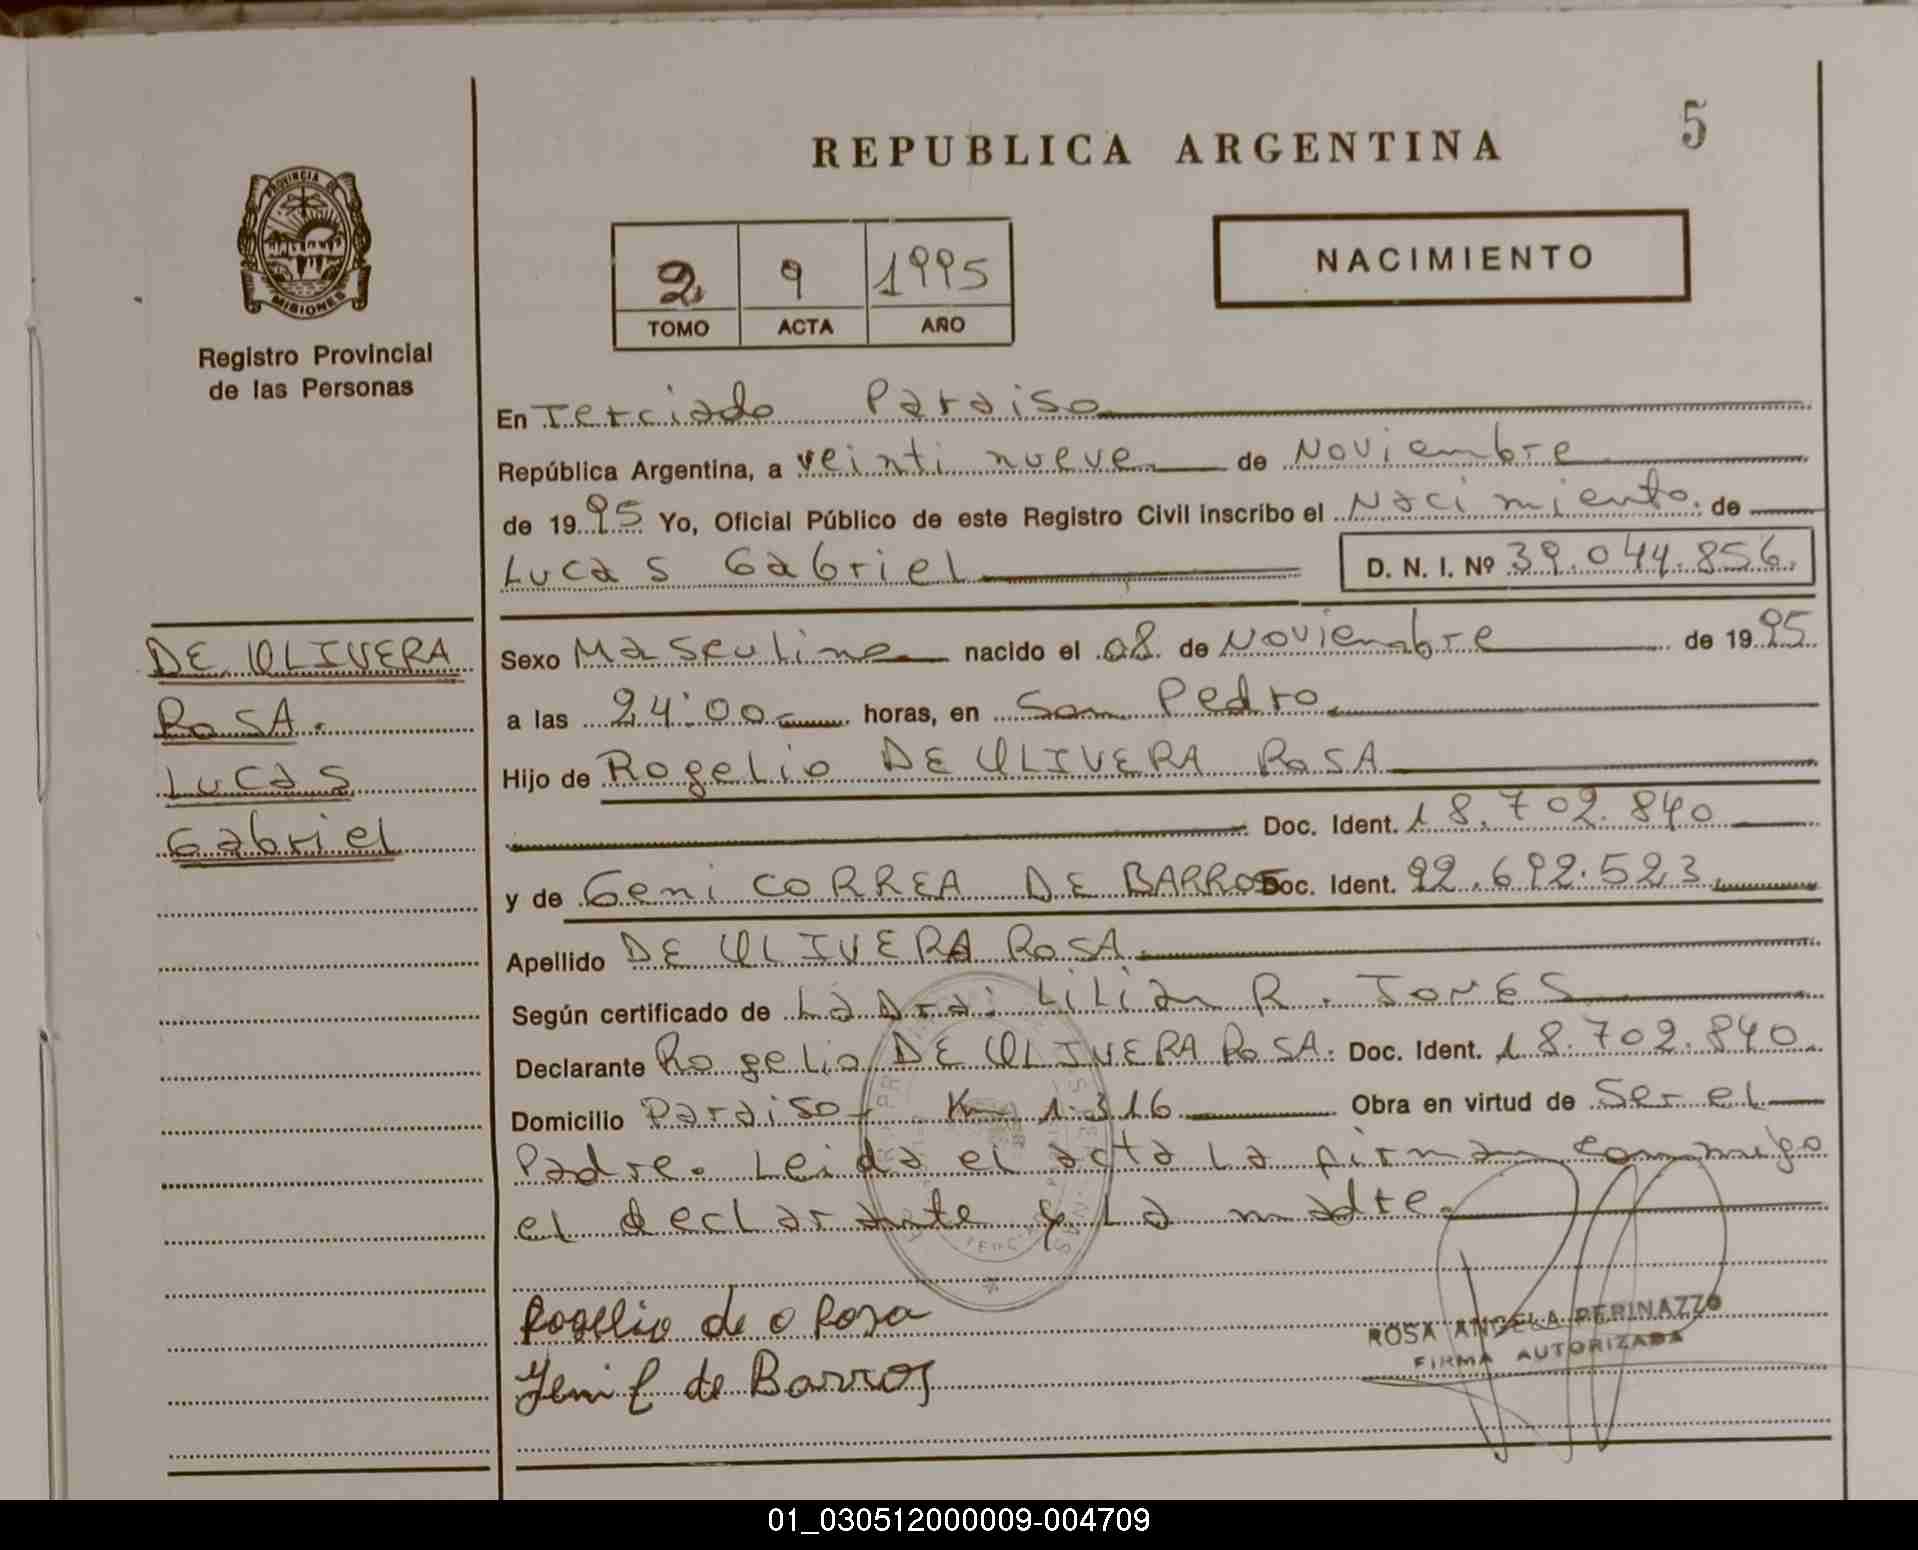 5
REPUBLICA ARGENTINA
PROVINCIA DE
MISIONES
Registro Provincial
de las Personas
2 9 1995
TOMO ACTA AÑO
NACIMIENTO
En Terciado Paraiso
República Argentina, a veinti nueve de Noviembre
de 1995 Yo, Oficial Público de este Registro Civil inscribo el Nacimiento. de
Lucas Gabriel D. N. I. Nº 39.044.856.
DE OLIVERA
ROSA.
Lucas
Gabriel
Sexo Masculino nacido el 08 de Noviembre de 1995
a las 24:00 horas, en San Pedro.
Hijo de Rogelio DE OLIVERA ROSA
Doc. Ident. 18.702.840
y de Geni CORREA DE BARROS Doc. Ident. 22.692.523
Apellido DE OLIVERA ROSA.
Según certificado de La Dra: Lilian R. JONES
Declarante Rogelio DE OLIVERA ROSA. Doc. Ident. 18.702.840.
Domicilio Paraiso- Km 1.316 Obra en virtud de Ser el
Padre. Leida el acta la firman conmigo
el declarante y La madre.
Rogelio de o Rosa
Yeni C de Barros
ROSA ANGELA PERINAZZO
FIRMA AUTORIZADA
01_030512000009-004709